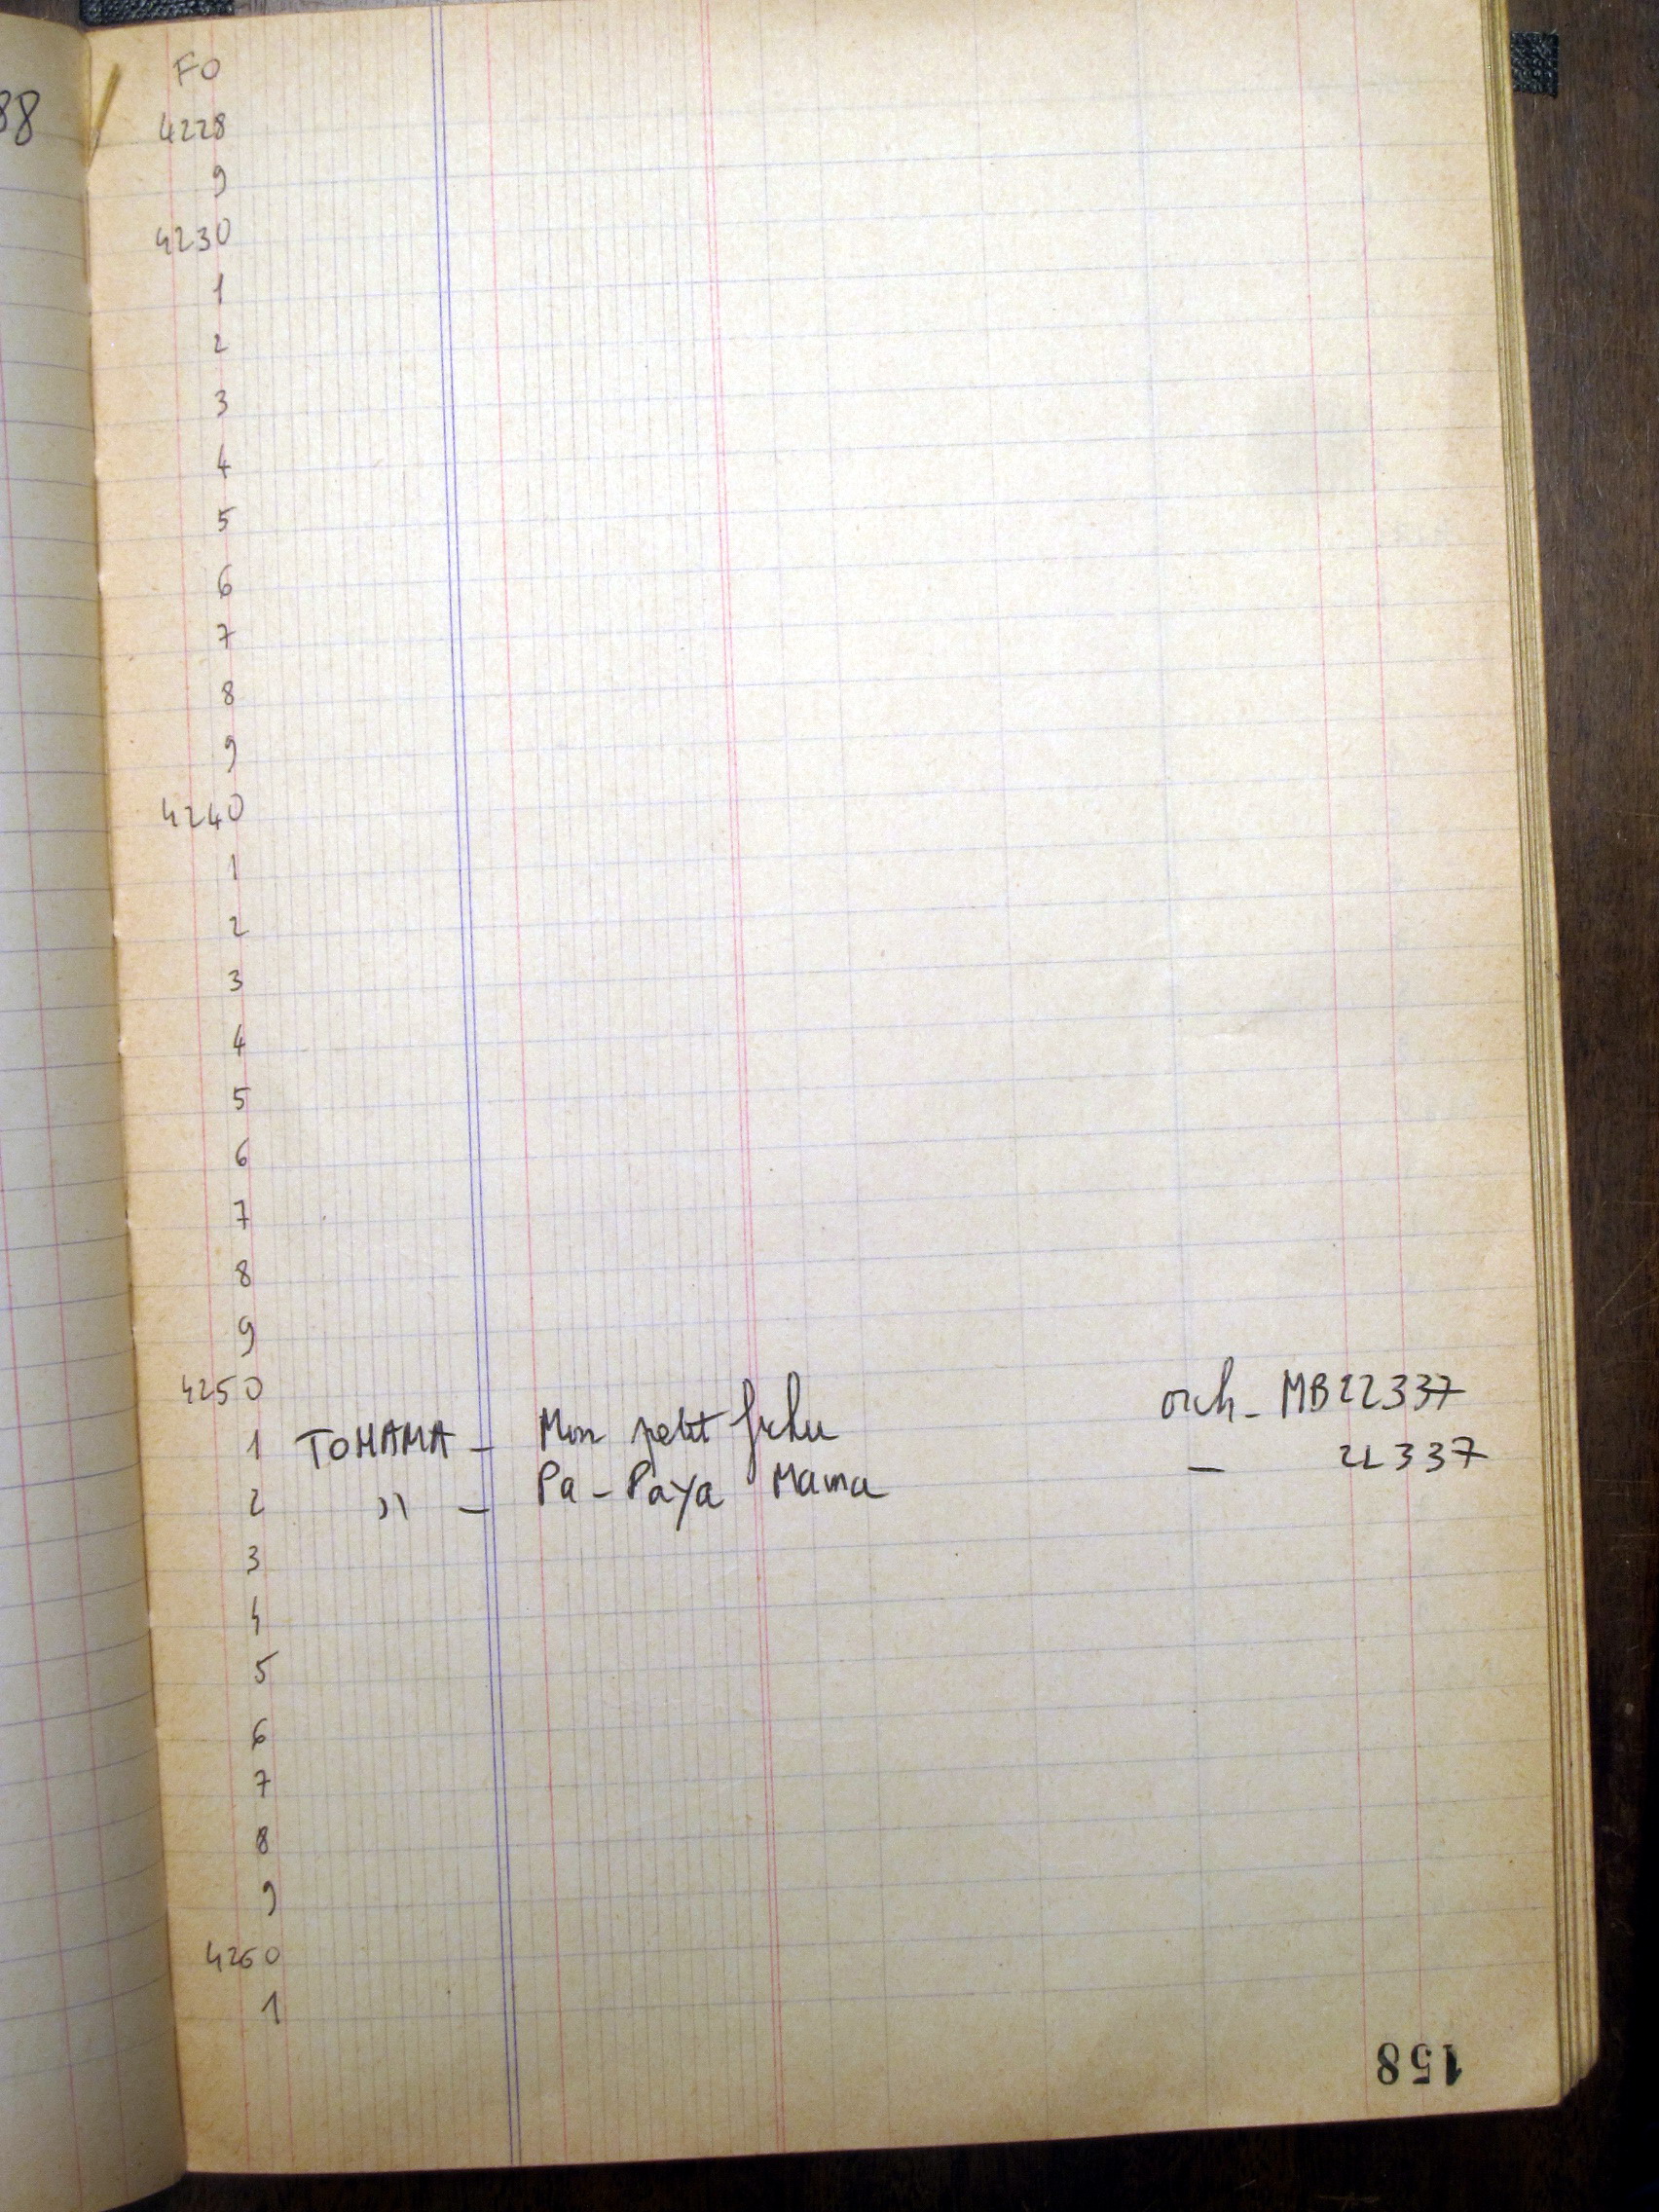 88
FO
4228
9
4230
1
2
3
4
5
6
7
8
9
4240
1
2
3
4
5
6
7
8
9
4250
1 TOHAMA - Mon petit fichu orch - MB 22337
2 " - Pa-Paya Mama - 22337
3
4
5
6
7
8
9
4260
1
158